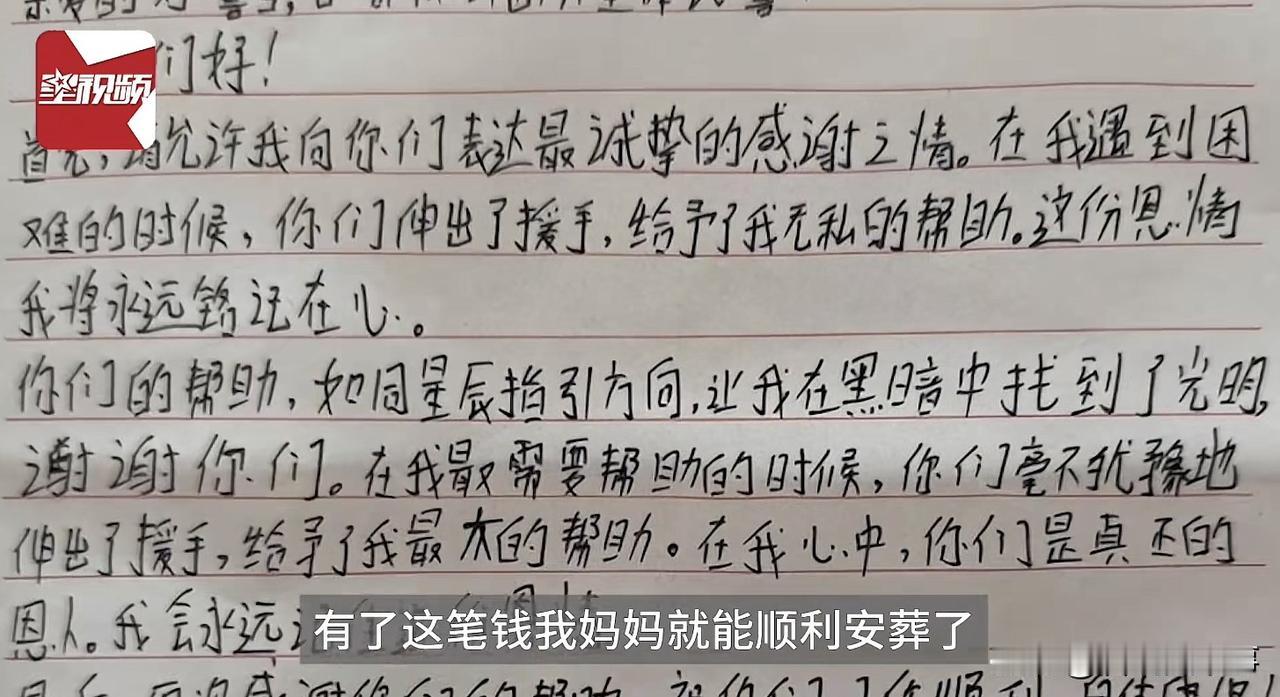 们好！
星视频
首先，请允许我向你们表达最诚挚的感谢之情。在我遇到困
难的时候，你们伸出了援手，给予了我无私的帮助。这份恩情
我将永远铭记在心。
你们的帮助，如同星辰指引方向，让我在黑暗中找到了光明，
谢谢你们。在我最需要帮助的时候，你们毫不犹豫地
伸出了援手，给予了我最大的帮助。在我心中，你们是真正的
恩人。我会永远
有了这笔钱我妈妈就能顺利安葬了
感谢你们的帮助，祝你们工作顺利